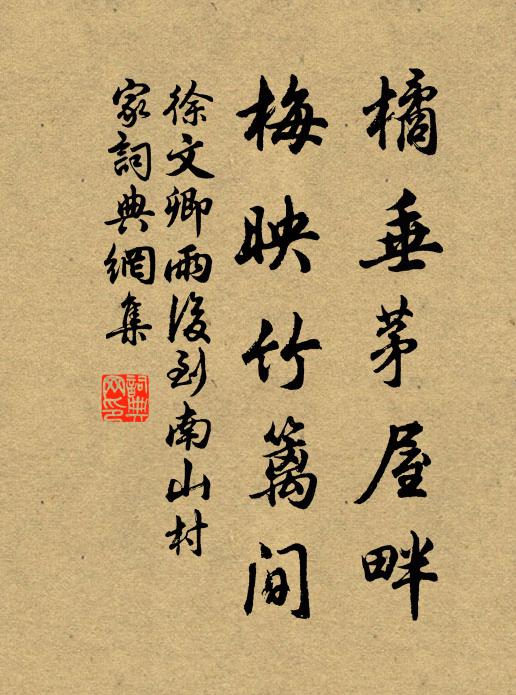 橘垂茅屋畔
梅映竹篱间
徐文卿雨後到南山村
家詞典網集
詞典
网印